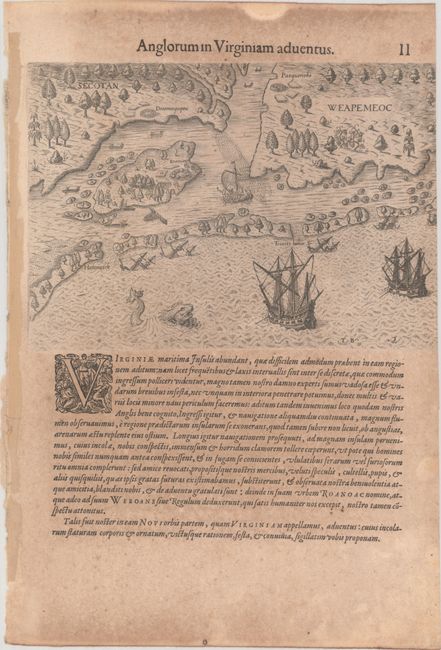 Anglorum in Virginiam aduentus. II
SECOTAN
WEAPEMEOC
Pasquenoke
Dasamonquepeuc
Roanoac
Trinety harbor
Hatorasck
T B
VIRGINIÆ maritima Insulis abundant, quæ difficilem admodum præbent in eam regio-
nem aditum: nam licet frequētibus & laxis interuallis sint inter se discretæ, quæ commodum
ingressum polliceri videntur, magno tamen nostro damno experti sumus vadosa esse & vn-
darum breuibus infesta, nec vnquam in interiora penetrare potuimus, donec multis & va-
riis locis minore naui periculum faceremus: aditum tandem inuenimus loco quodam nostris
Anglis bene cognito. Ingressi igitur, & nauigatione aliquamdiu continuata, magnum flu-
men obseruauimus, è regione prædictarum insularum se exonerans, quod tamen subire non licuit, ob angustias,
arenarum actu repletum eius ostium. Longius igitur nauigationem prosequuti, ad magnam insulam perueni-
mus, cuius incolæ, nobis conspectis, immensum & horridum clamorem tollere cœperunt, vt pote qui homines
nobis similes numquam antea conspexissent, & in fugam se conijcientes, vlulatibus ferarum vel fursosorum
ritu omnia complerunt: sed amice reuocati, propositisque nostris mercibus, veluti speculis, cultellis, pupis, &
aliis quisquiliis, quæ ipsis gratas futuras existimabamus, substiterunt, & obseruata nostra beniuolentia at-
que amicitia, blanditi nobis, & de aduentu gratulati sunt: deinde in suam vrbem ROANOAC nomine, at-
que adeo ad suum WEROANS siue Regulum deduxerunt, qui satis humaniter nos excepit, nostro tamen cō-
spectu attonitus.
Talis fuit noster in eam NOVI orbis partem, quam VIRGINIAM appellamus, aduentus: cuius incola-
rum staturam corporis & ornatum, victusque rationem, festa, & conuiuia, sigillatim vobis proponam.